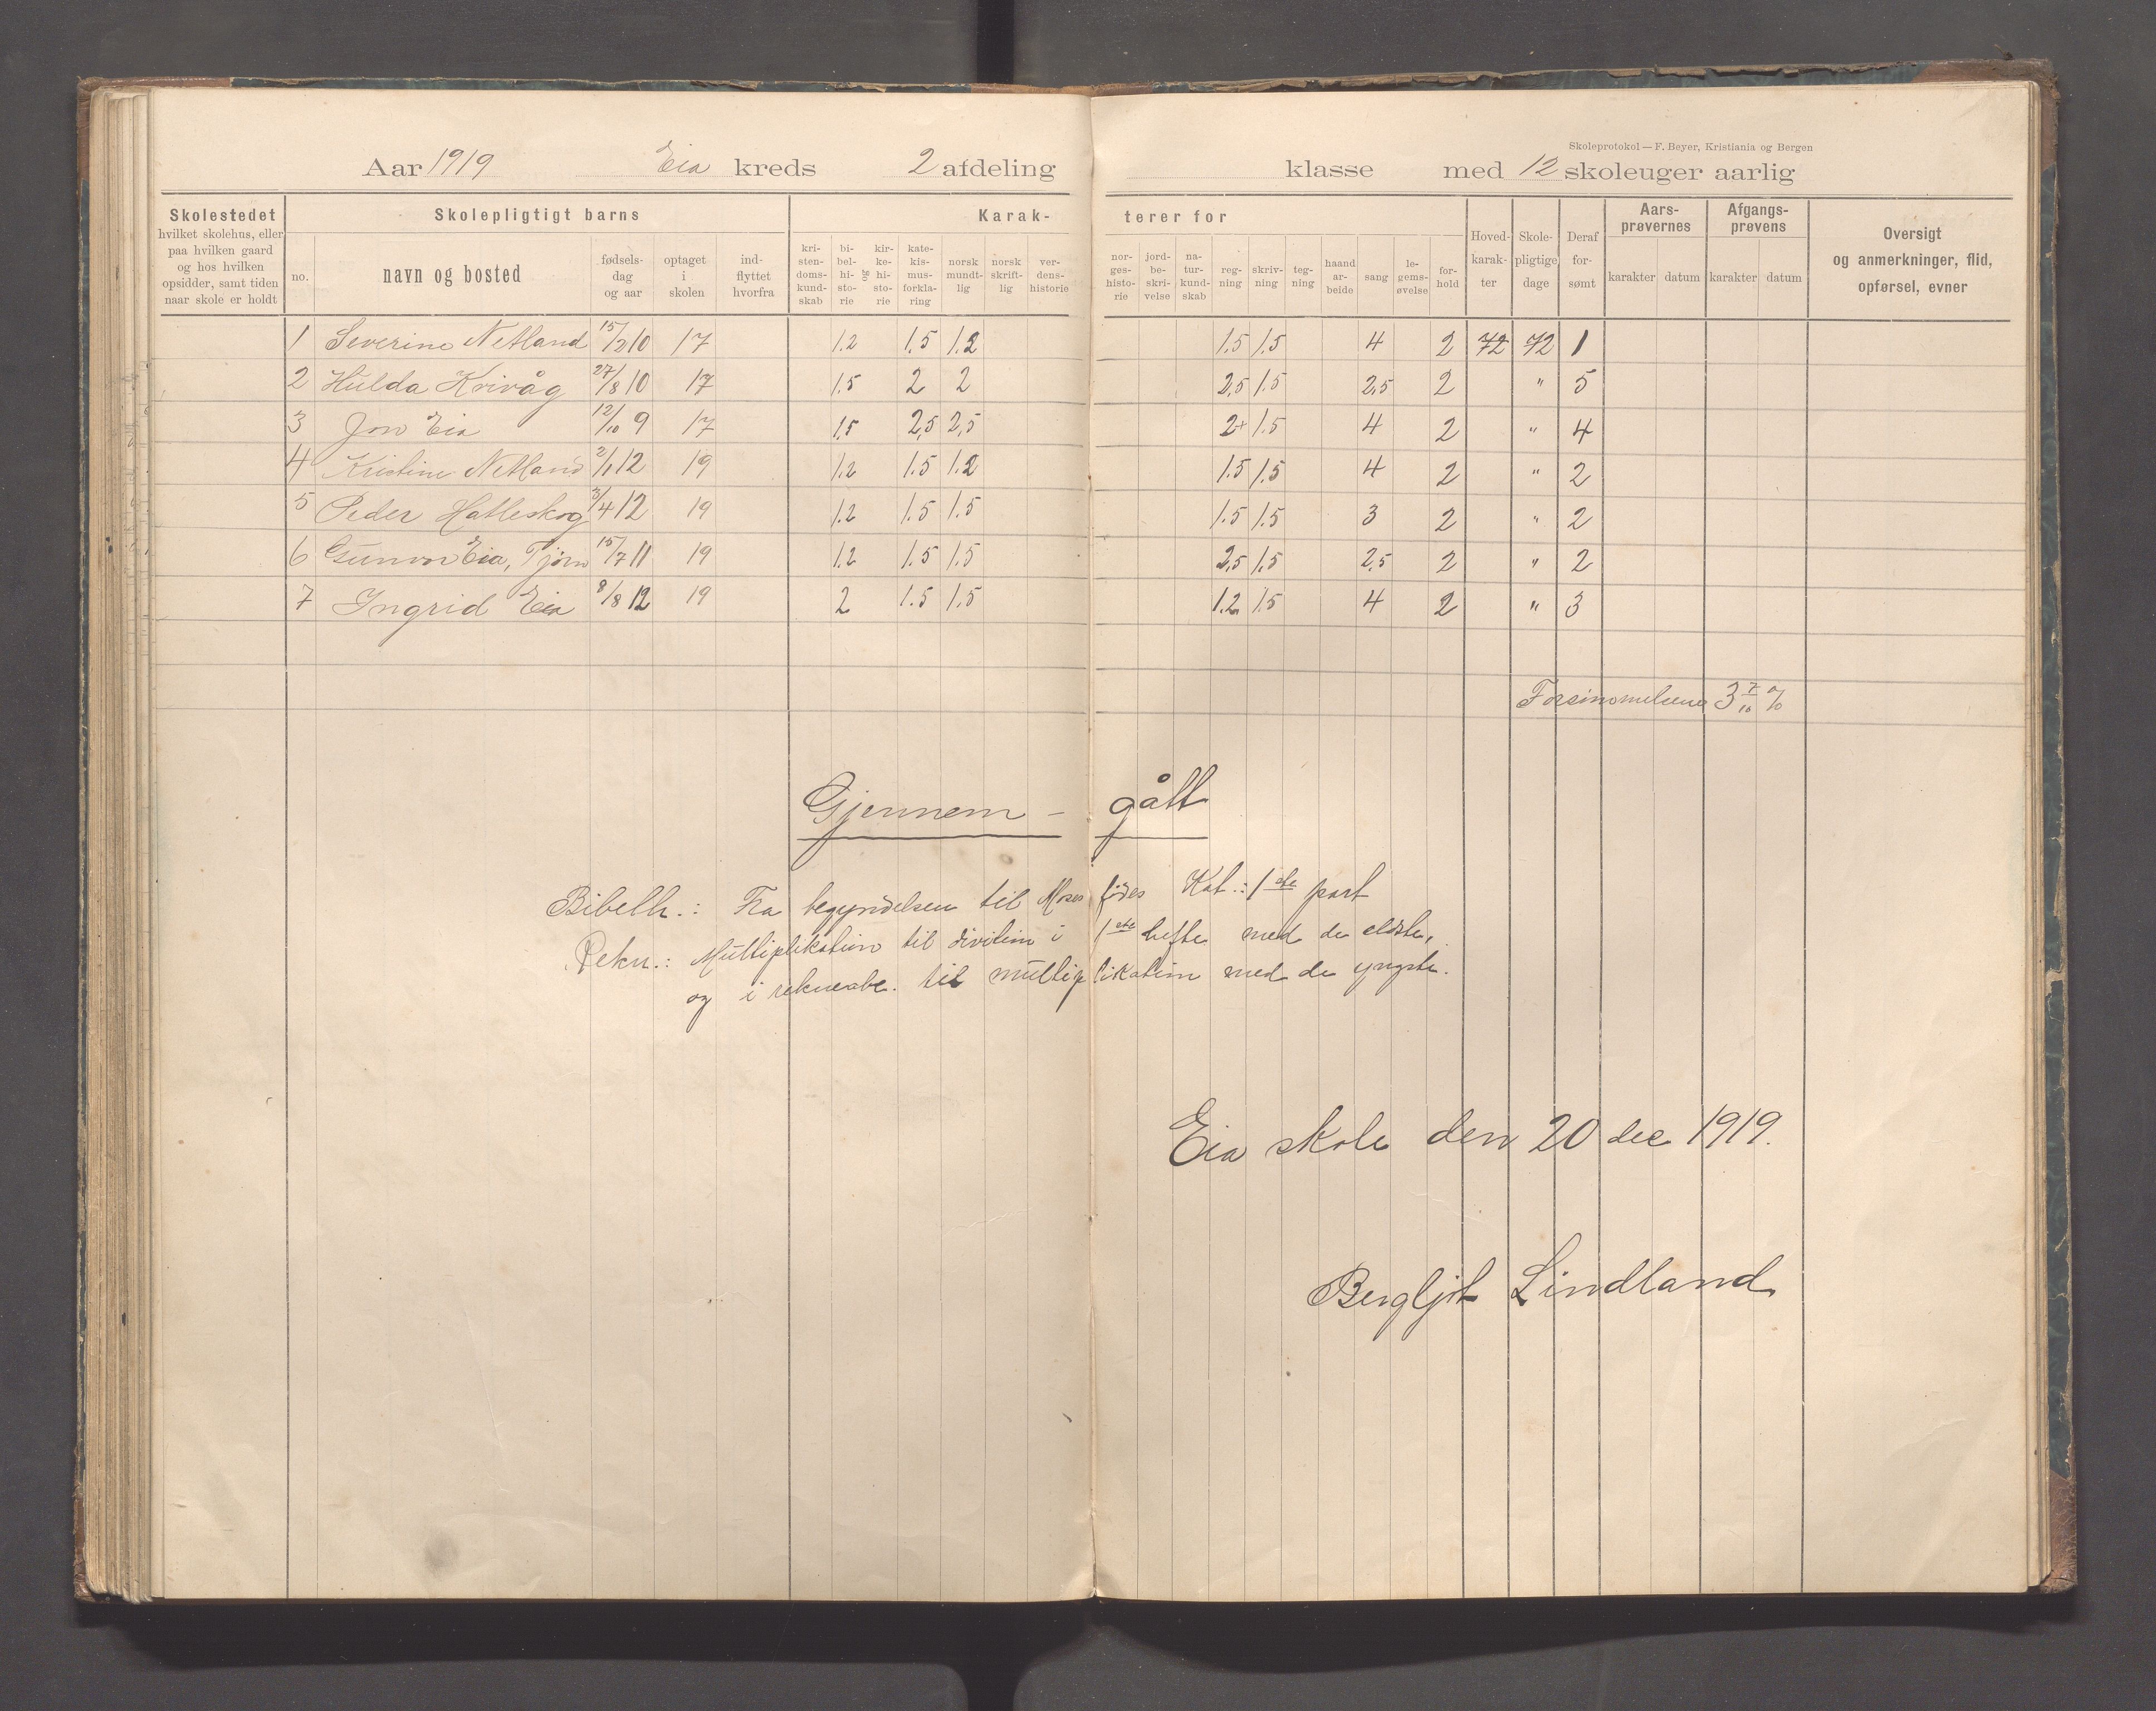 Skoleprotokol — F. Beyer, Kristiania og Bergen
Aar 1919 Eia kreds 2 afdeling klasse med 12 skoleuger aarlig
Skolestedet
hvilket skolehus, eller
paa hvilken gaard
og hos hvilken
opsidder, samt tiden
naar skole er holdt
Skolepligtigt barns
no.
navn og bosted
fødsels-
dag
og aar
optaget
i
skolen
ind-
flyttet
hvorfra
Karak-
kri-
sten-
doms-
kund-
skab
bi-
bel-
hi-
sto-
rie
og
kir-
ke-
hi-
sto-
rie
kate-
kis-
mus-
forkla-
ring
norsk
mundt-
lig
norsk
skrift-
lig
ver-
dens-
historie
terer for
nor-
ges-
histo-
rie
jord-
be-
skri-
velse
na-
tur-
kund-
skab
reg-
ning
skriv-
ning
teg-
ning
haand
ar-
beide
sang
le-
gems-
øvelse
for-
hold
Hoved-
karak-
ter
Skole-
pligtige
dage
Deraf
for-
sømt
Aars-
prøvernes
karakter datum
Afgangs-
prøvens
karakter datum
Oversigt
og anmerkninger, flid,
opførsel, evner
1 Severine Netland 15/2 10 17 1.2 1.5 1.2 1.5 1.5 4 2 72 72 1
2 Hulda Krivåg 27/8 10 17 1.5 2 2 2,5 1.5 2,5 2 " 5
3 Jon Eia 12/10 9 17 1,5 2,5 2,5 2+ 1.5 4 2 " 4
4 Kristine Netland 2/1 12 19 1.2 1.5 1.2 1.5 1.5 4 2 " 2
5 Peder Hatleskog 3/4 12 19 1.2 1.5 1.5 1.5 1.5 3 2 " 2
6 Gunvor Eia, Tjörn 15/7 11 19 1.2 1.5 1.5 2,5 1.5 2,5 2 " 2
7 Ingrid Eia 8/8 12 19 2 1.5 1.5 1.2 1.5 4 2 " 3
3 7/10 %
Gjennem - gått
Bibelh.: Fra begyndelsen til Moses födes Kat.: 1ste part
Rekn.: Multiplikation til division i 1ste hefte med de eldste,
og i reknearbe. til multiplikation med de yngste.
Eia skole den 20 dec 1919.
Bergljot Lindland